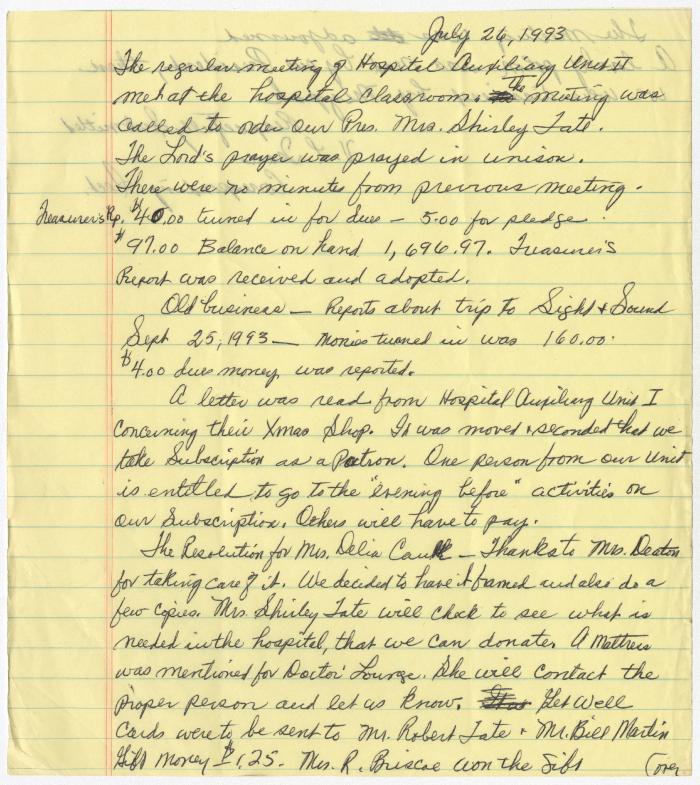 July 26, 1993
The regular meeting of Hospital Auxiliary Unit II
met at the hospital classroom. The meeting was
called to order our Pres. Mrs. Shirley Tate.
The Lord's prayer was prayed in unison.
There were no minutes from previous meeting.
Treasurer's Rp. $40.00 turned in for dues – 5.00 for pledge
$97.00 Balance on hand 1,696.97. Treasurer's
Report was received and adopted.
Old business – Reports about trip to Sight & Sound
Sept 25, 1993 – Monies turned in was 160.00.
$4.00 dues money, was reported.
A letter was read from Hospital Auxiliary Unit I
concerning their Xmas Shop. It was moved & seconded that we
take Subscription as a Patron. One person from our Unit
is entitled to go to the "evening before" activities on
our Subscription. Others will have to pay.
The Resolution for Mrs. Delia – Thanks to Mrs. Deaton
for taking care of it. We decided to have it framed and also do a
few copies. Mrs. Shirley Tate will check to see what is
needed in the hospital, that we can donate. A Mattress
was mentioned for Doctor' Lounge. She will contact the
proper person and let us know. Get Well
Cards were to be sent to Mr. Robert Tate & Mr. Bill Martin
Gift Money $1.25. Mrs. R. Briscoe won the Gift
(over